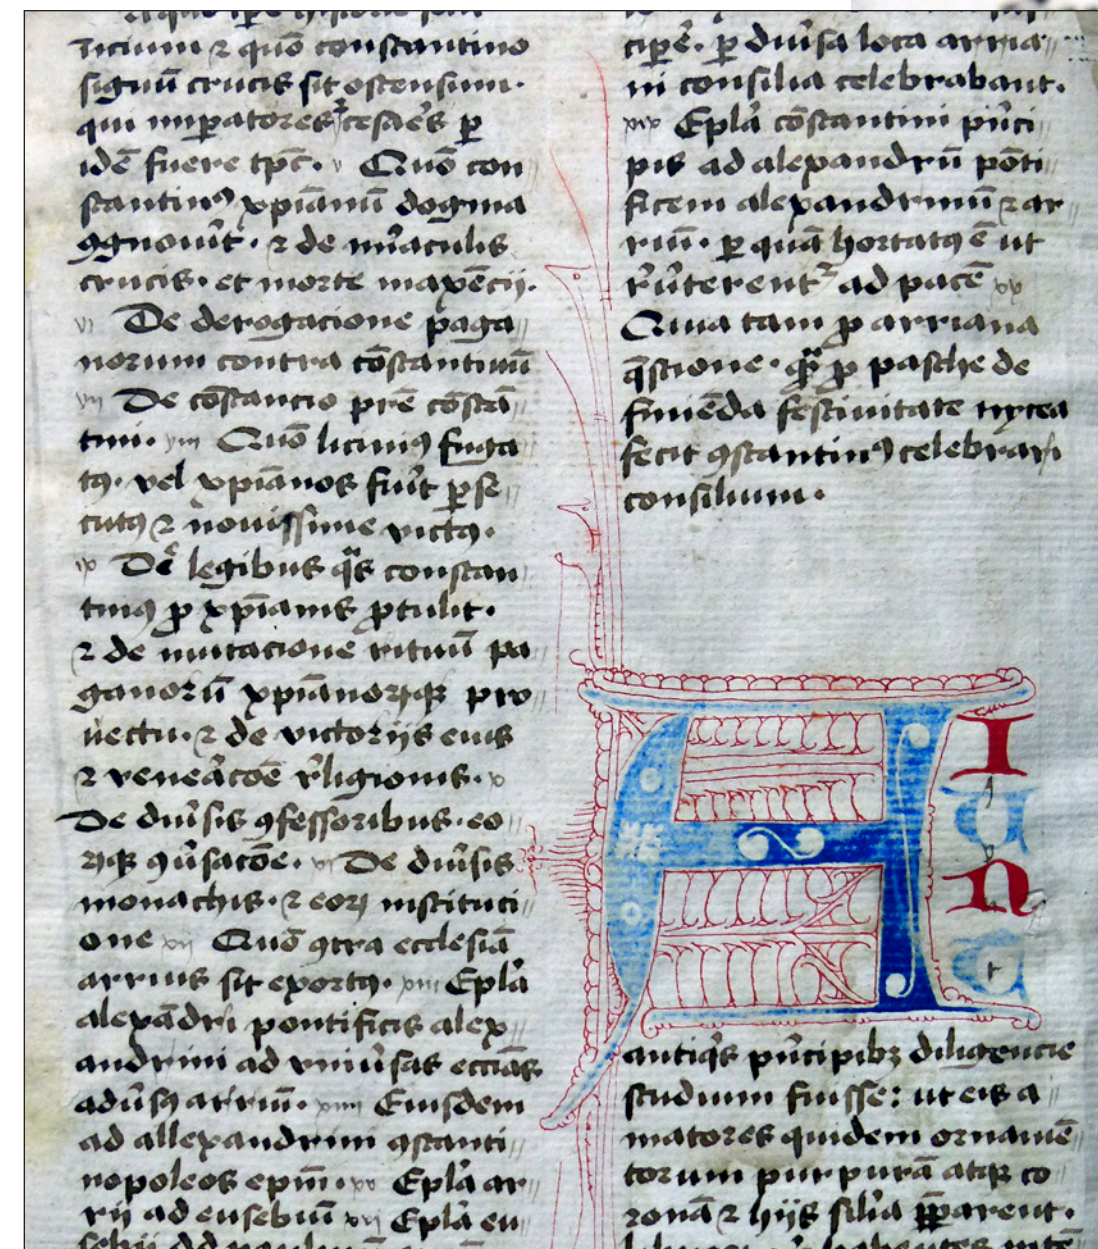 ticium ⁊ quō constantino
signū crucis sit ostensum·
qui imꝑatores ⁊ cesaēs ꝑ
idē fuere tp̄r· v Quō con
stantinꝰ xp̄ianū dogma
ꝯgnouīt· ⁊ de mīaculis
crucis· et morte maxēcij·
vi De derogacione paga
norum contra cōstantinū
vii De cōstancio prē cōstā
tini· viii Quō liciniꝰ fuga
tꝰ· vel xp̄ianos fuīt ꝑse
cutꝰ ⁊ nouissime victꝰ·
ix De legibus qͣs constan
tinꝰ ꝓ xp̄ianis ꝓtulit·
⁊ de mutacione rituū pa
ganorū xp̄ianorꝝqꝫ pro
uectu· ⁊ de victorijs eius
⁊ veneᷓacōe r̄ligionis· x
De diūsis ꝯfessoribus· eo
ꝝqꝫ ꝯūsacōe· xi De diūsis
monachis· ⁊ eoꝝ instituci
one xii Quō ꝯtra ecclesiā
arrius sit exortꝰ· xiii Epl̄a
alexādri pontificis alex
andrini ad vniūsas ecc̄ias
adūsꝰ arriū· xiiii Eiusdem
ad allexandrim ꝯstanti
nopoleos ep̄m· xv Epl̄a ar
rij ad eusebiū xvi Epl̄a eu
sebij ad
ciꝑe· ꝑ diūsa loca arria
ni consilia celebrabant·
xix Epl̄a cōstantini pͥnci
pis ad alexandrū pōti
ficem alexandrinū ⁊ ar
riū· ꝑ quā hortatꝰ ē ut
r̄ūterent ad pacē xx
Quia tam ꝓ arriana
q̄stione· qͣꝫ ꝓ pasche de
finiēda festiuitate nycea
fecit ꝯstantinꝰ celebrari
consilium·
AIUNT
antiqͦs pͥncipibꝫ diligencie
studium fuisse: ut eis a
matores quidem ornamē
torum purpurā atqꝫ co
ronā ⁊ hijs sil̄ia ꝑparent·